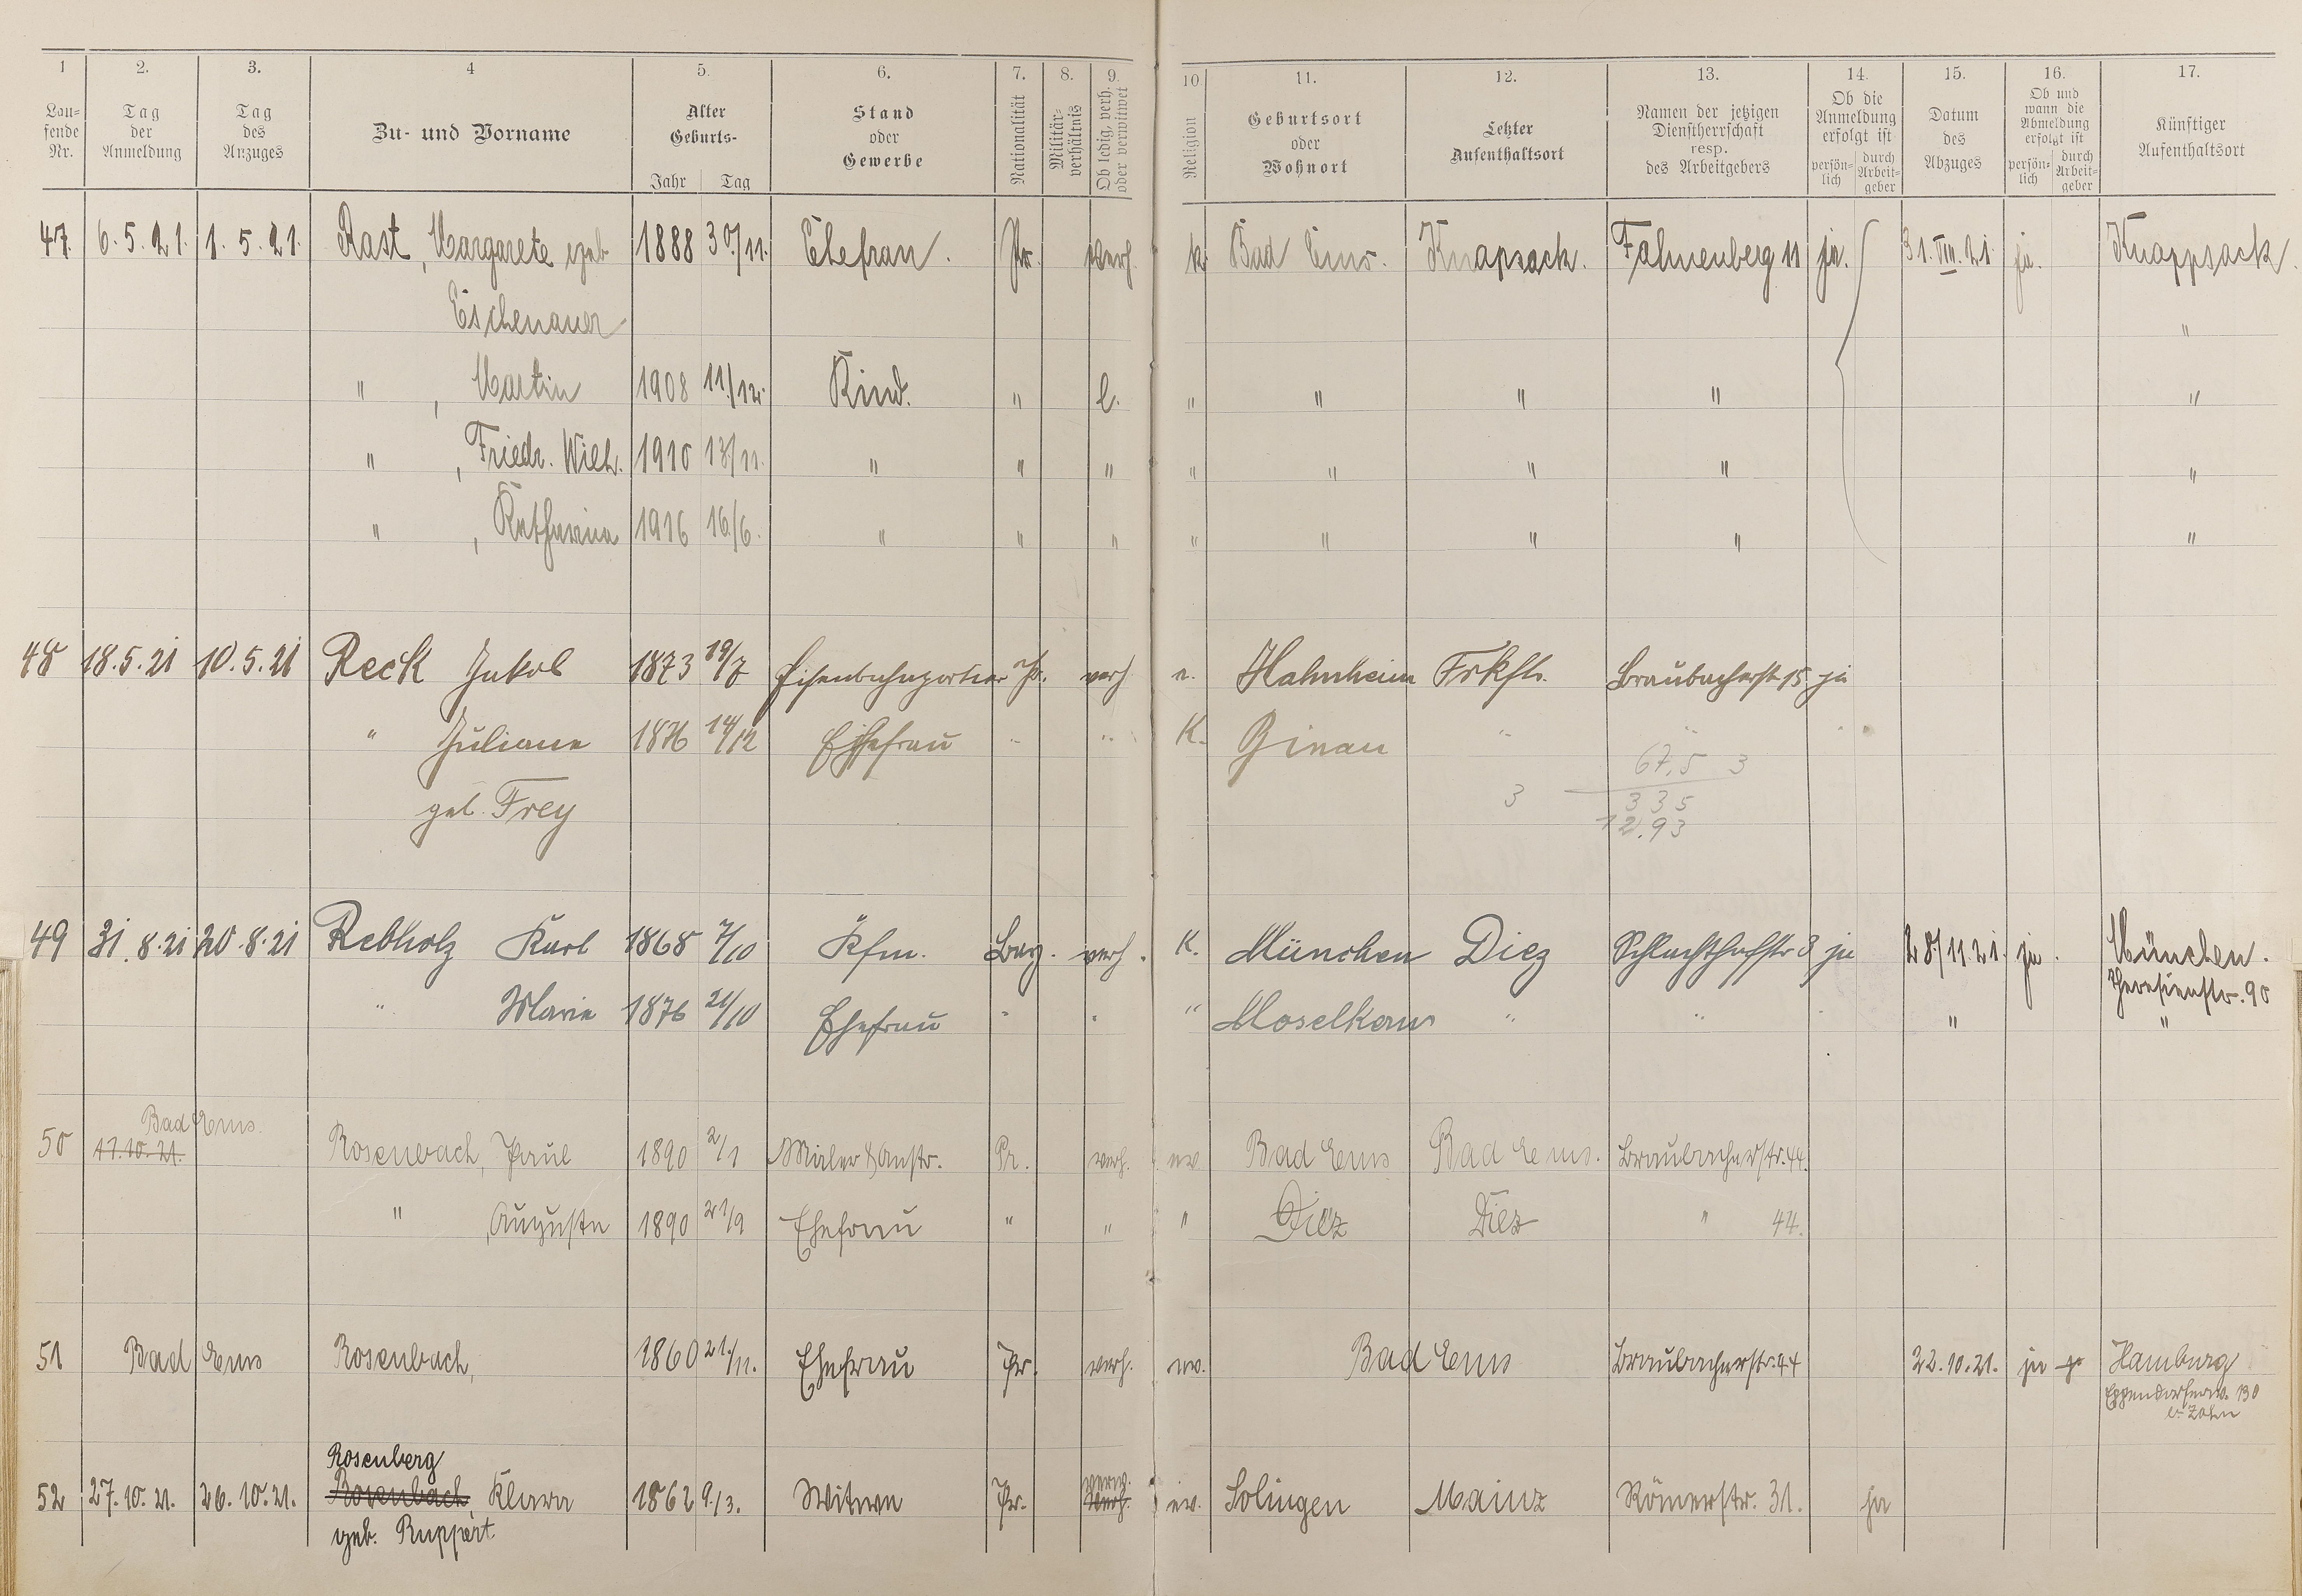 1 2. 3. 4 5. 6. 7. 8. 9. 10 11. 12. 13. 14. 15. 16. 17.
Lau-
fende
Nr.
Tag
der
Anmeldung
Tag
des
Anzuges
Zu- und Vorname
Alter
Geburts-
Jahr Tag
Stand
oder
Gewerbe
Nationalität
Militär-
verhältnis
Ob ledig, verh.
oder verwitwet
Religion
Geburtsort
oder
Wohnort
Letzter
Aufenthaltsort
Namen der jetzigen
Dienstherrschaft
resp.
des Arbeitgebers
Ob die
Anmeldung
erfolgt ist
persön-
lich
durch
Arbeit-
geber
Datum
des
Abzuges
Ob und
wann die
Abmeldung
erfolgt ist
persön-
lich
durch
Arbeit-
geber
Künftiger
Aufenthaltsort
47. 6. 5. 21. 1. 5. 21. Rast, Margarete geb 1888 30./11. Ehefrau. Pr. verh. k. Bad Ems. Knapsack. Fahnenberg 11 ja. 31. VIII. 21. ja. Knappsack.
Eschenauer "
" , Martin 1908 11./12. Kind. " l. " " " " "
" , Friedr. Wilh. 1910 13/11. " " " " " " " "
" , Katharina 1916 16./6. " " " " " " " "
48 18. 5. 21 10. 5. 21 Reck Jakob 1873 19/7 Eisenbahnportier Pr. verh e. Hahnheim Frkft. Braubacherst 15 ja
" Juliane 1876 14/12 Ehefrau " " K. " " "
67,5 3
geb. Frey 3 335
12.93
49 31. 8. 21 20. 8. 21 Rebholz Karl 1868 7/10 Kfm. Bay. verh. K. München Diez Schlachthofstr 8 ja 28./11. 21. ja. München.
Theresienstr. 90
" Marie 1876 21/10 Ehefrau " " " Moselkern " " " " "
Bad Ems.
50 17. 10. 21. Rosenbach, Paul 1890 2/1 Maler & Anstr. Pr. verh. ev. Bad Ems Bad Ems. Braubacherstr. 44.
" , Auguste 1890 21/9 Ehefrau " " " Diez Diez " 44.
51 Bad Ems Rosenbach, 1860 21./11. Ehefrau Pr. verh. ev. Bad Ems Braubacherstr. 44 22. 10. 21. ja Hamburg
Eppendorferw. 130
b. Zahn
Rosenberg verw.
52 27. 10. 21. 26. 10. 21. Rosenbach Klara 1862 9./3. Witwe Pr. verh. ev. Solingen Mainz Römerstr. 31. ja
geb. Ruppert.